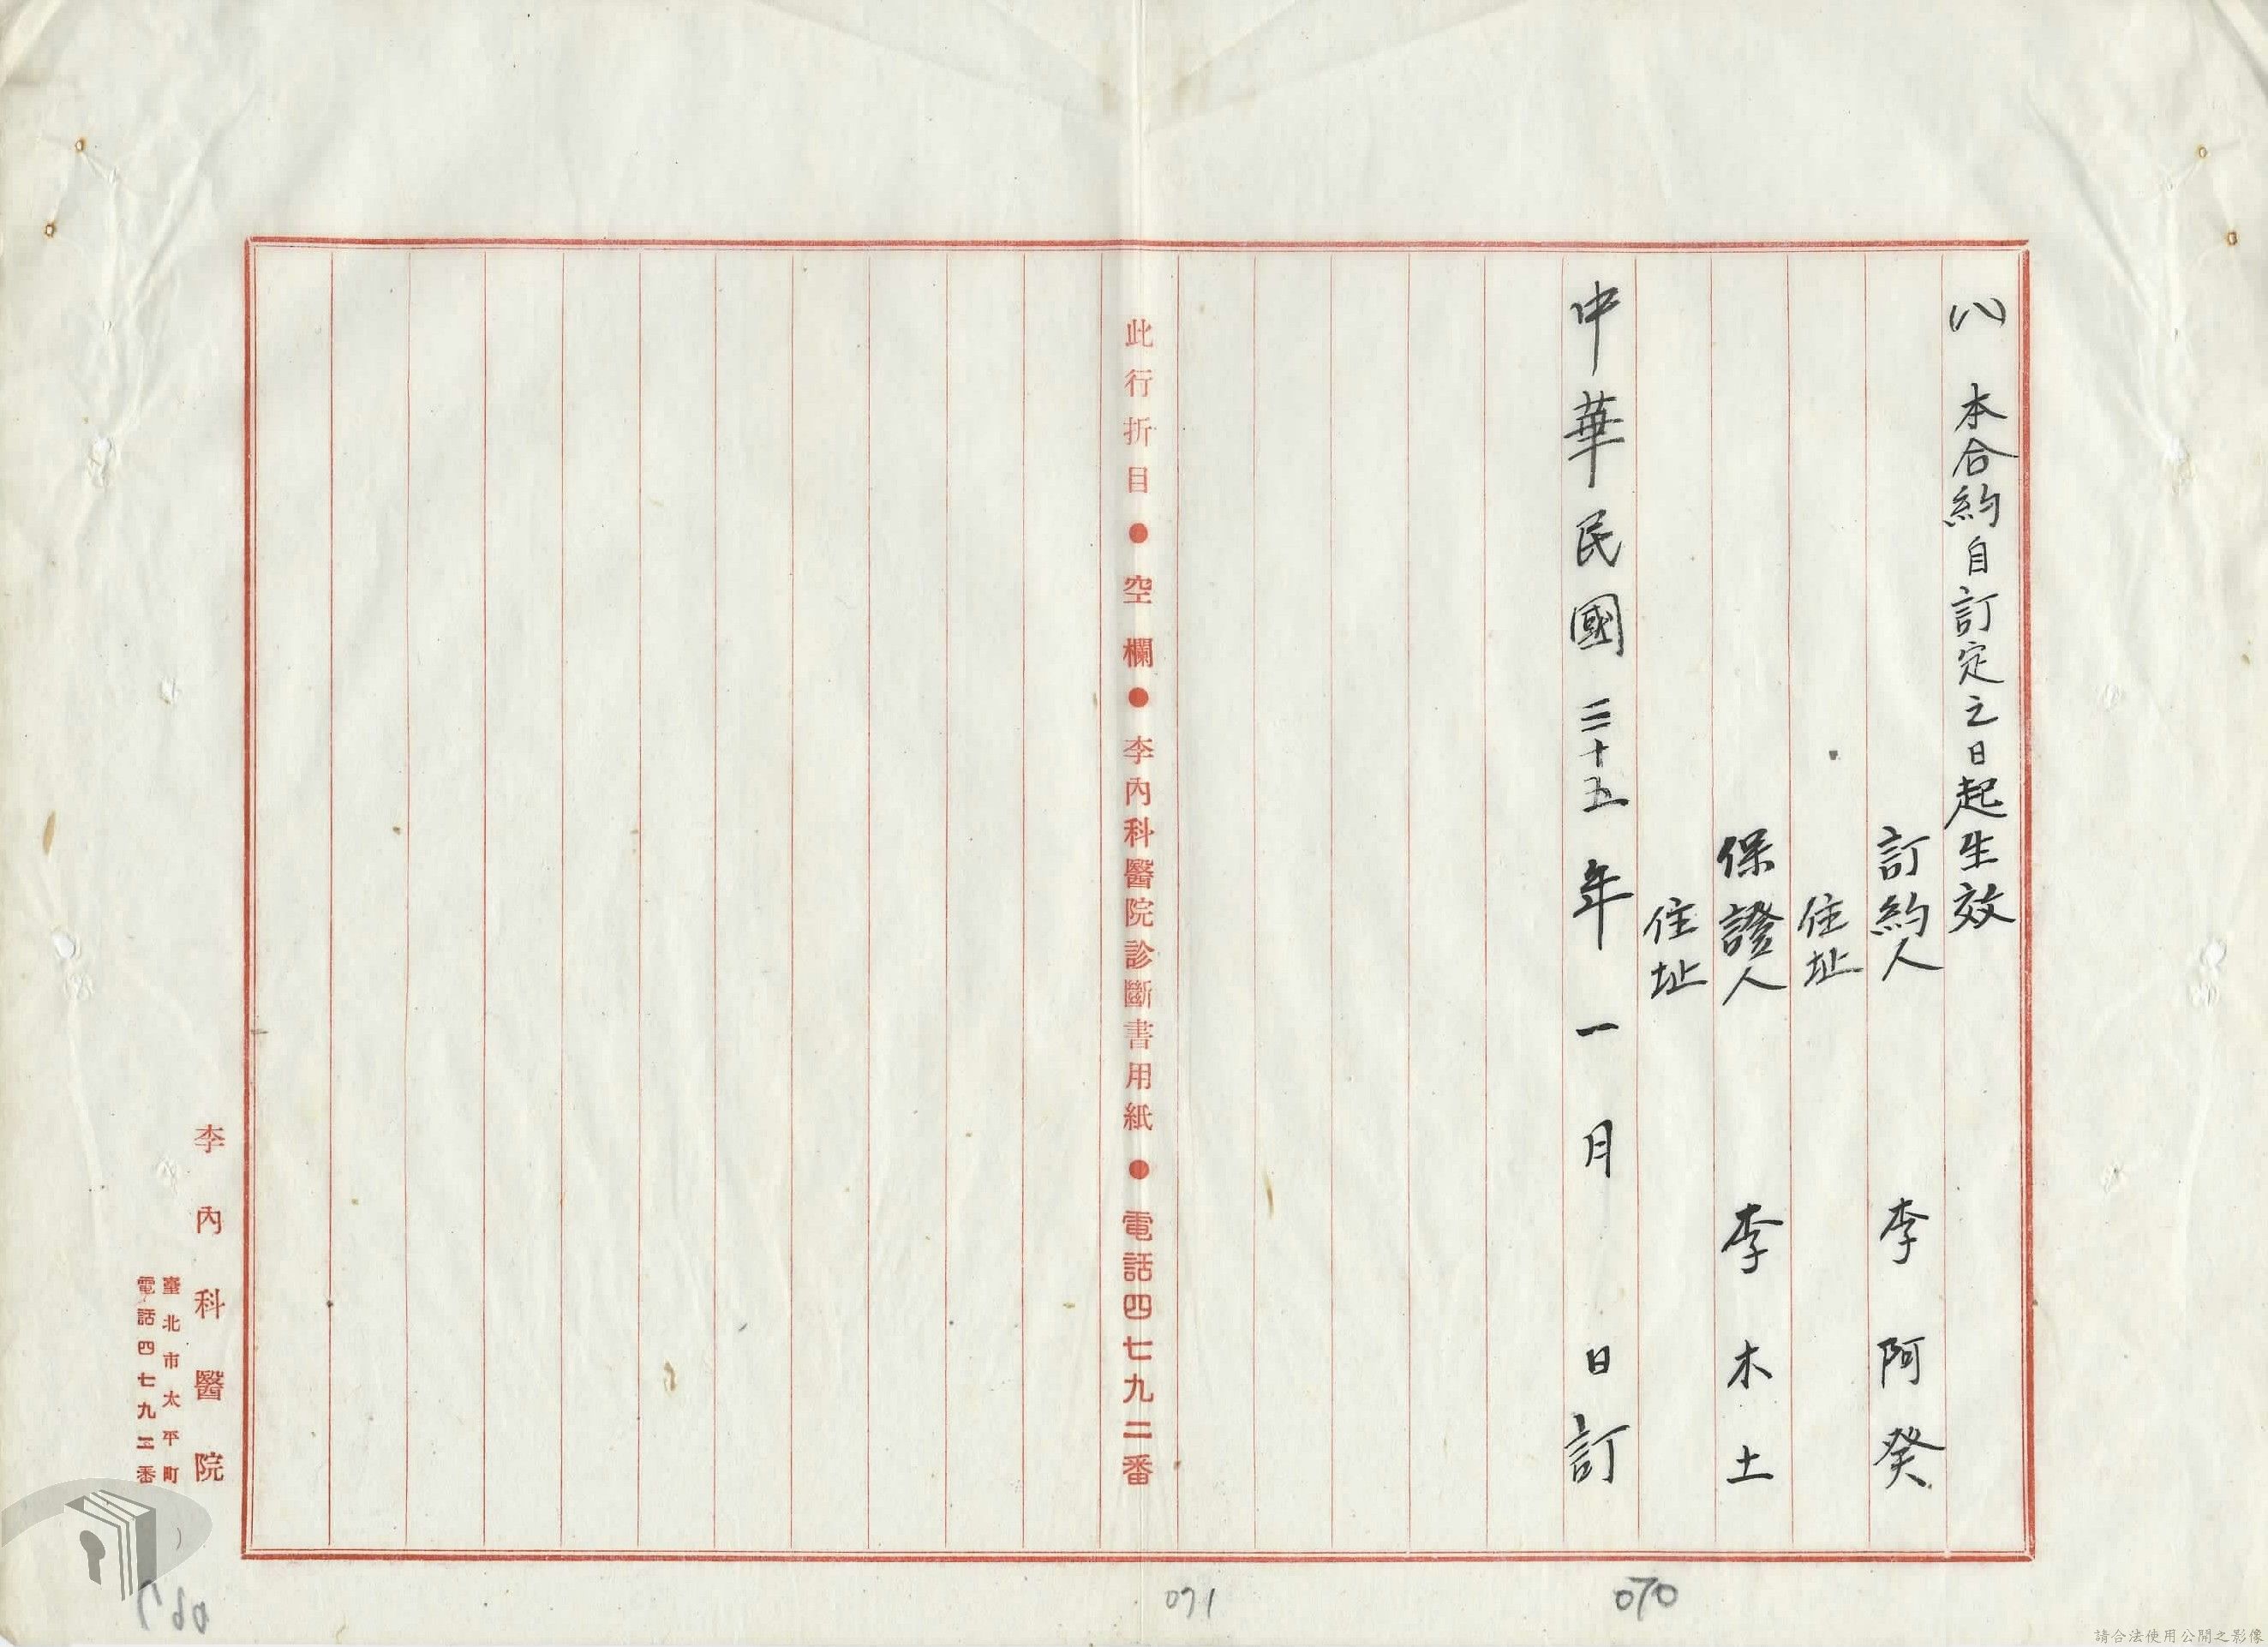 (八) 本合約自訂定之日起生效
訂約人 李阿癸
住址
保證人 李木土
住址
中華民國三十五年一月 日訂
此行折目●空欄●李內科醫院診斷書用紙●電話四七九二番
李內科醫院
臺北市太平町
電話四七九二番
070
071
067
請合法使用公開之影像